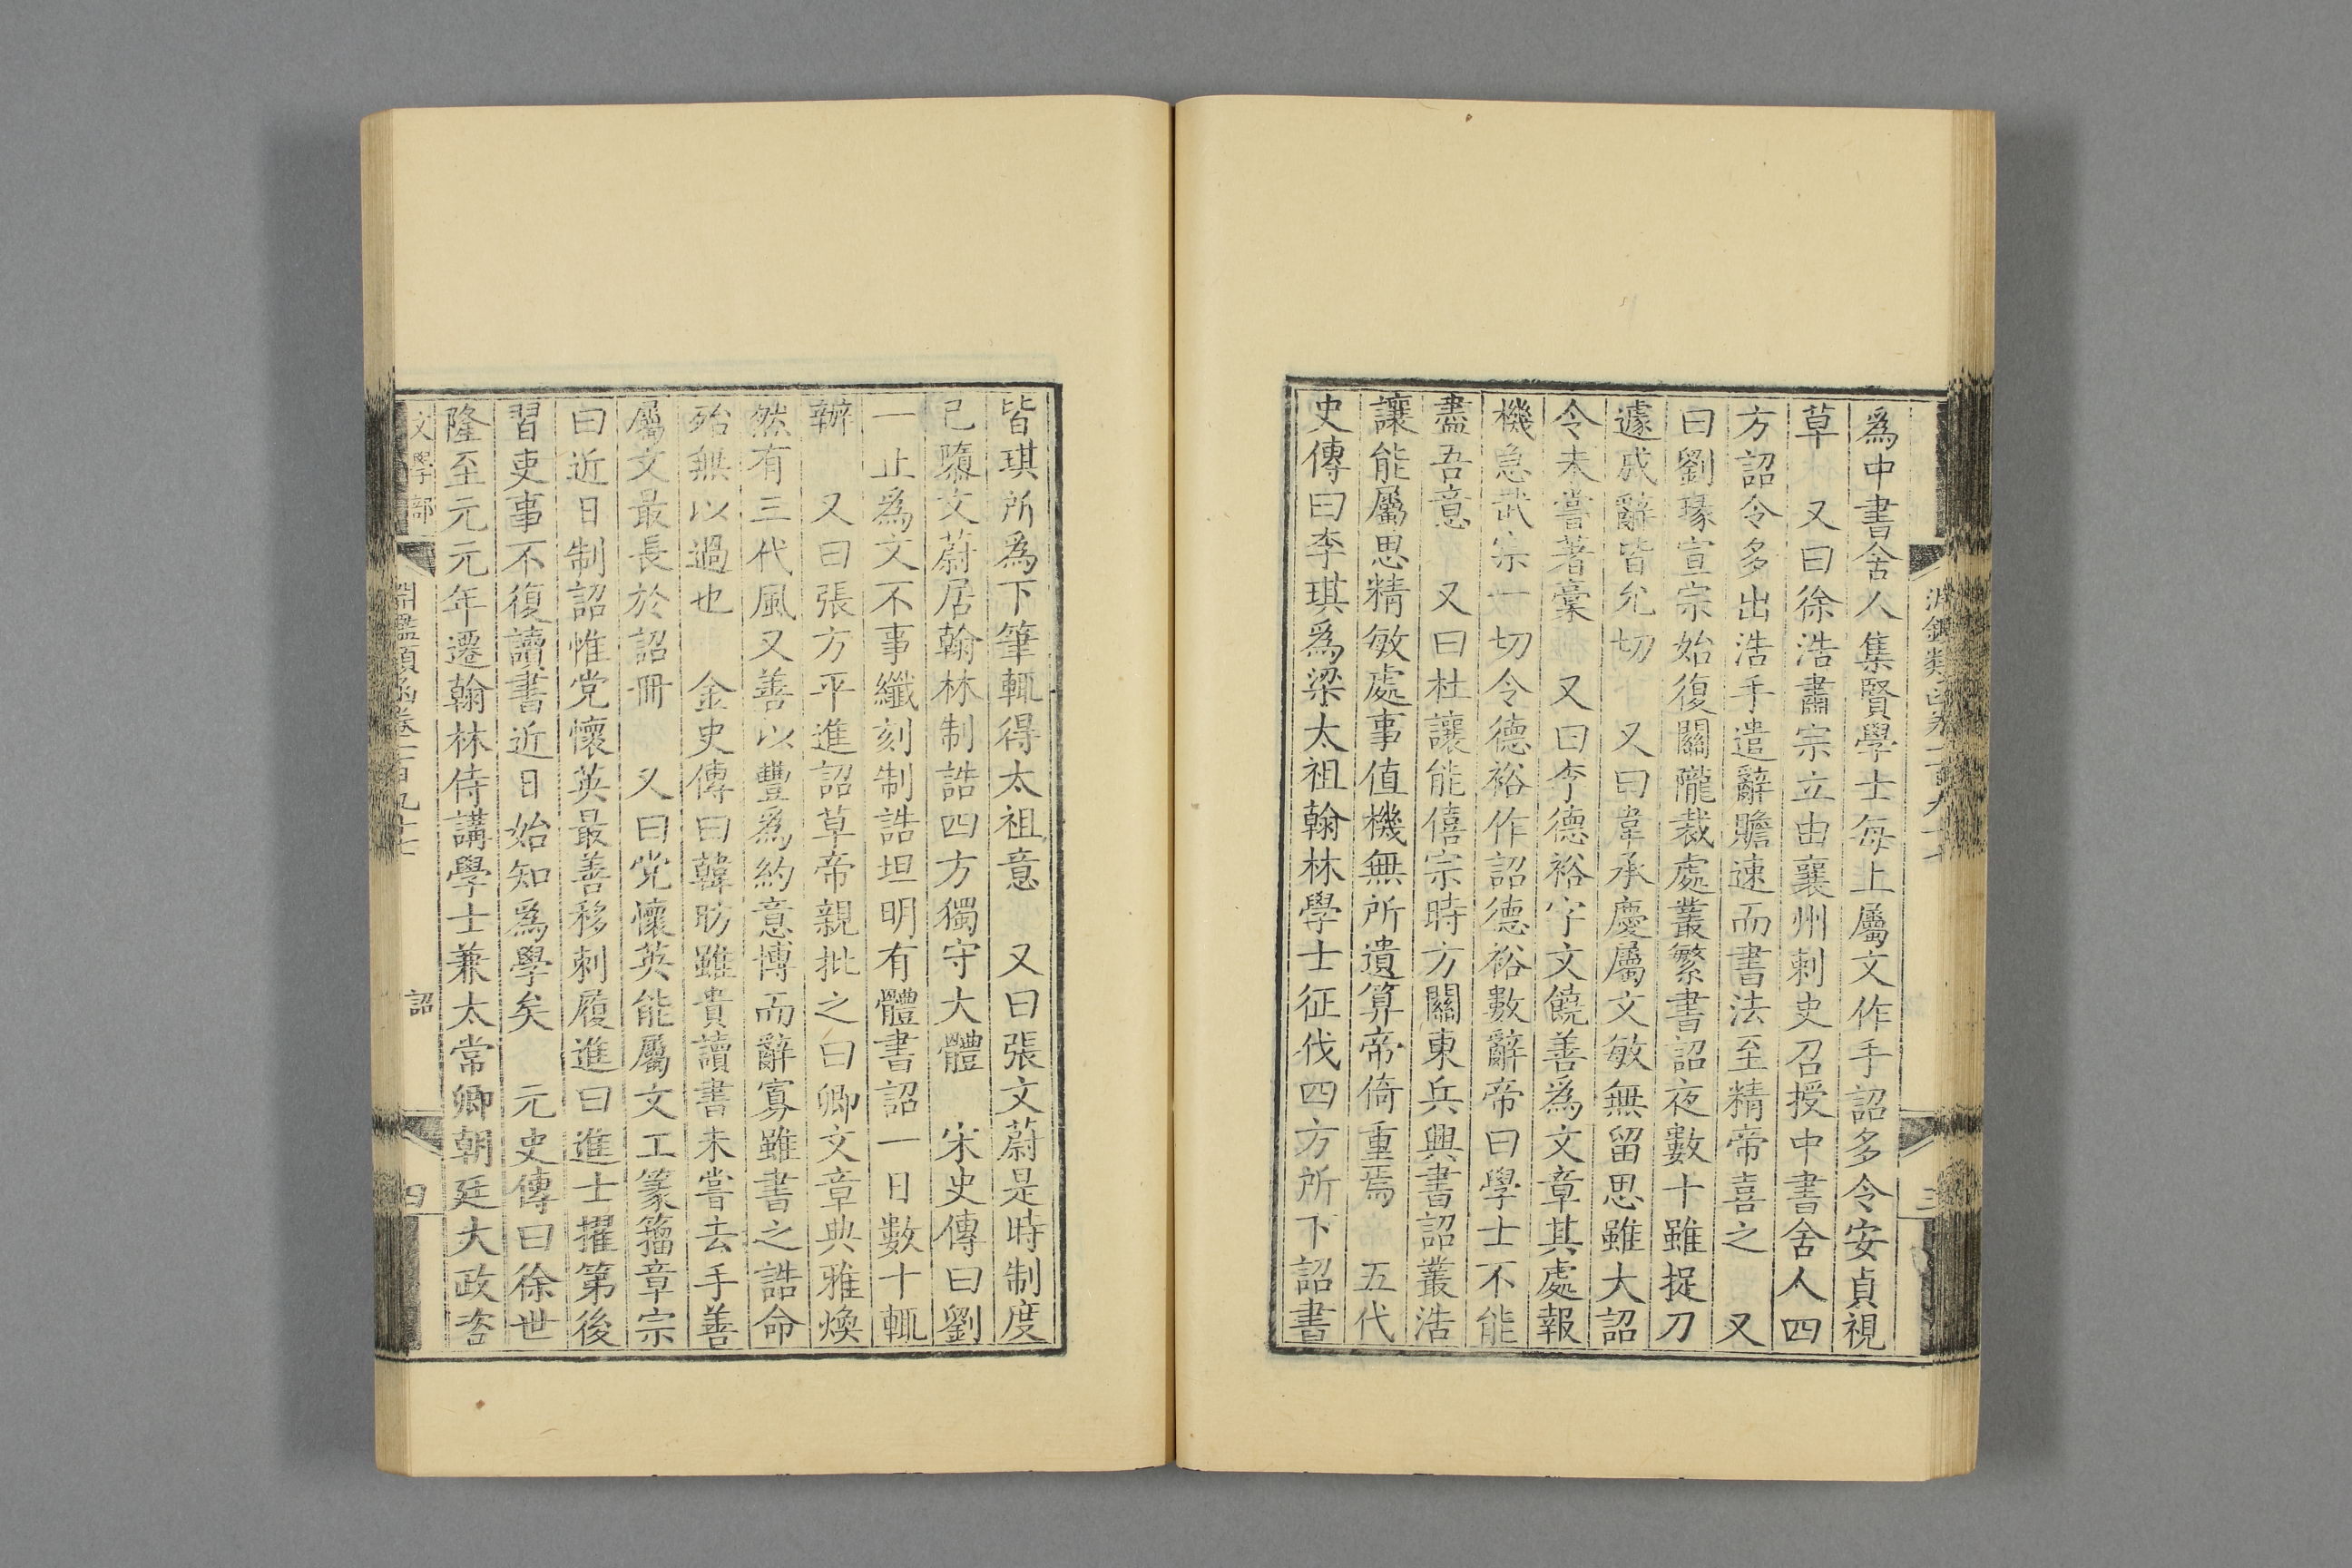 爲中書舍人集賢學士每上屬文作手詔多令安貞視
草　又曰徐浩肅宗立由襄州刺史召授中書舍人四
方詔令多出浩手遣辭贍速而書法至精帝喜之　又
曰劉瑑宣宗始復關隴裁處叢繁書詔夜數十雖捉刀
遽成辭皆允切　又曰韋承慶屬文敏無留思雖大詔
令未嘗著稾　又曰李德裕字文饒善爲文章其處報
機急武宗一切令德裕作詔德裕數辭帝曰學士不能
盡吾意　又曰杜讓能僖宗時方關東兵興書詔叢浩
讓能屬思精敏處事值機無所遺算帝倚重焉　五代
史傳曰李琪爲梁太祖翰林學士征伐四方所下詔書
皆琪所爲下筆輒得太祖意　又曰張文蔚是時制度
已隳文蔚居翰林制誥四方獨守大體　宋史傳曰劉
一止爲文不事纖刻制誥坦明有體書詔一日數十輒
辦　又曰張方平進詔草帝親批之曰卿文章典雅煥
然有三代風又善以豐爲約意博而辭寡雖書之誥命
殆無以過也　金史傳曰韓昉雖貴讀書未嘗去手善
屬文最長於詔冊　又曰党懷英能屬文工篆籀章宗
曰近日制詔惟党懷英最善移剌履進曰進士擢第後
習吏事不復讀書近日始知爲學矣　元史傳曰徐世
隆至元元年遷翰林侍講學士兼太常卿朝廷大政咨
文學部
淵鑑類函卷一百九十七
詔
四